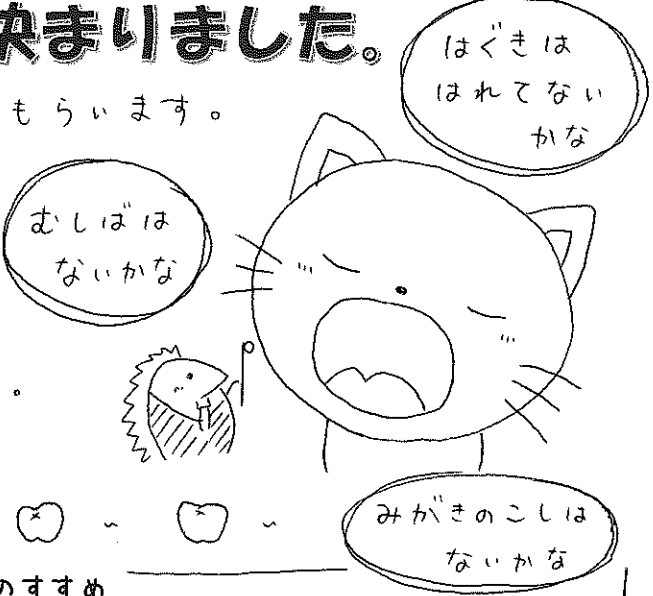 決まりました。
もらいます。
はぐきは
はれてない
かな
むしばは
ないかな
みがきのこしは
ないかな
のすすめ